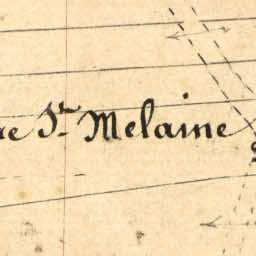 re St Melaine